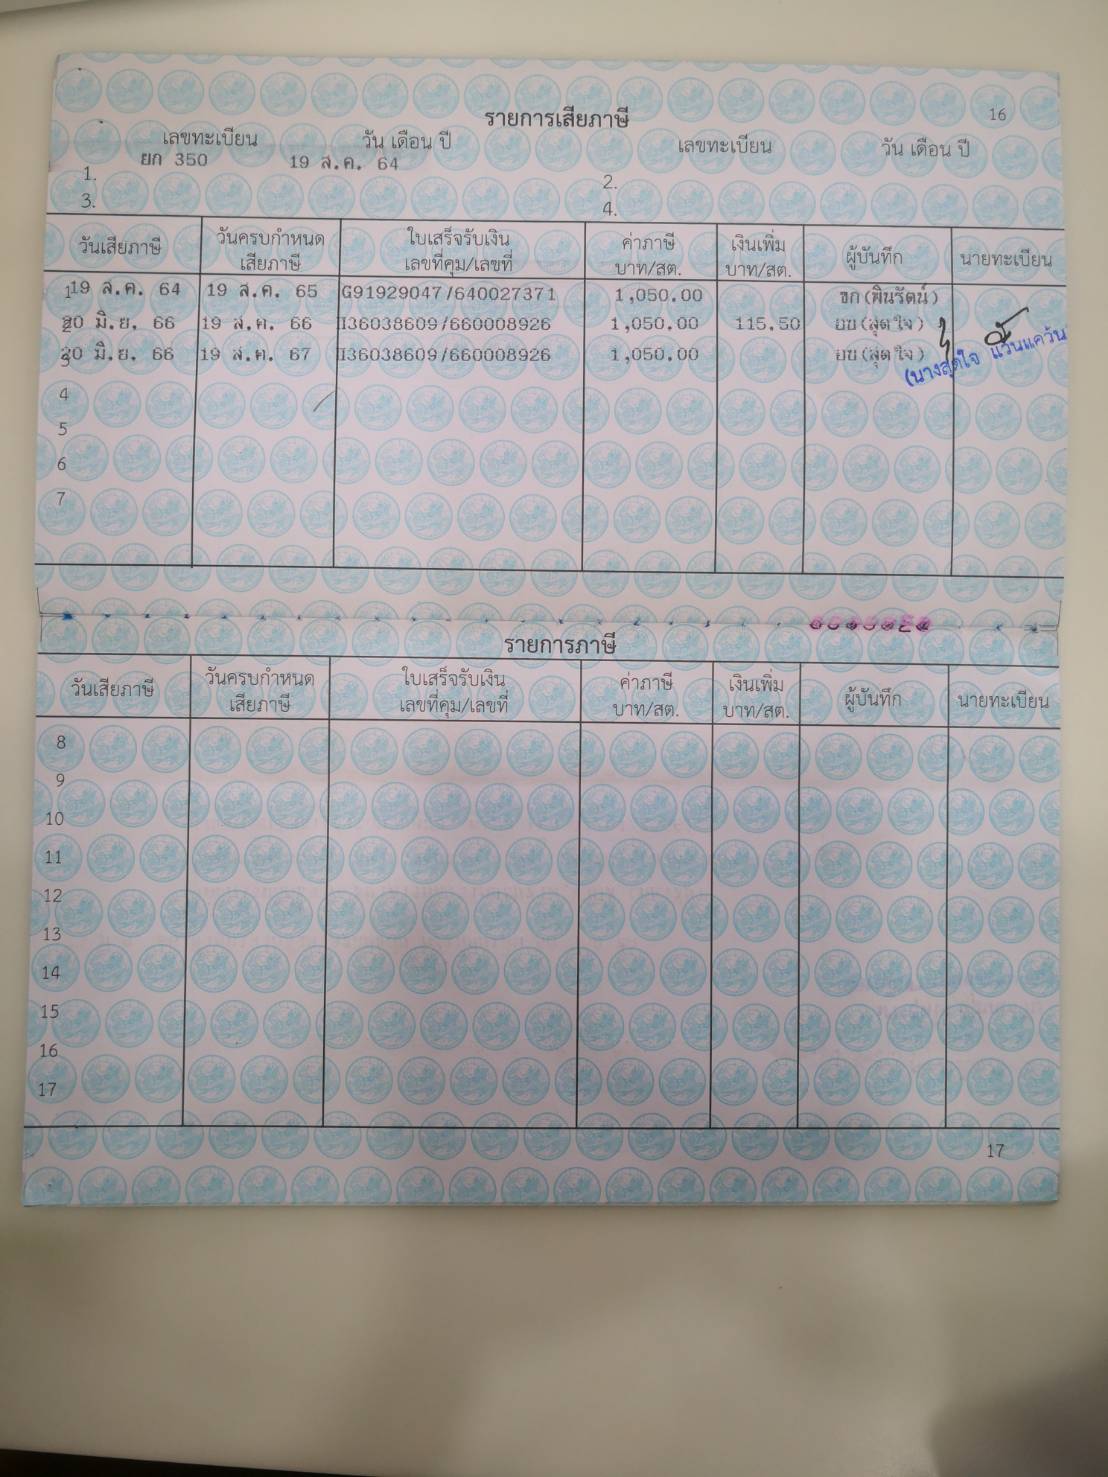 รายการเสียภาษี
16
เลขทะเบียน วัน เดือน ปี เลขทะเบียน วัน เดือน ปี
ยก 350 19 ส.ค. 64
1. 2.
3. 4.
วันเสียภาษี วันครบกำหนดเสียภาษี ใบเสร็จรับเงิน เลขที่คุม/เลขที่ ค่าภาษี บาท/สต. เงินเพิ่ม บาท/สต. ผู้บันทึก นายทะเบียน
1 19 ส.ค. 64 19 ส.ค. 65 G91929047/640027371 1,050.00 ขก(พินรัตน์)
2 20 มิ.ย. 66 19 ส.ค. 66 I36038609/660008926 1,050.00 115.50 ยข(สุดใจ)
3 20 มิ.ย. 66 19 ส.ค. 67 I36038609/660008926 1,050.00 ยข(สุดใจ)
(นางสุดใจ แว่นแคว้น)
4
5
6
7
รายการภาษี
วันเสียภาษี วันครบกำหนดเสียภาษี ใบเสร็จรับเงิน เลขที่คุม/เลขที่ ค่าภาษี บาท/สต. เงินเพิ่ม บาท/สต. ผู้บันทึก นายทะเบียน
8
9
10
11
12
13
14
15
16
17
17